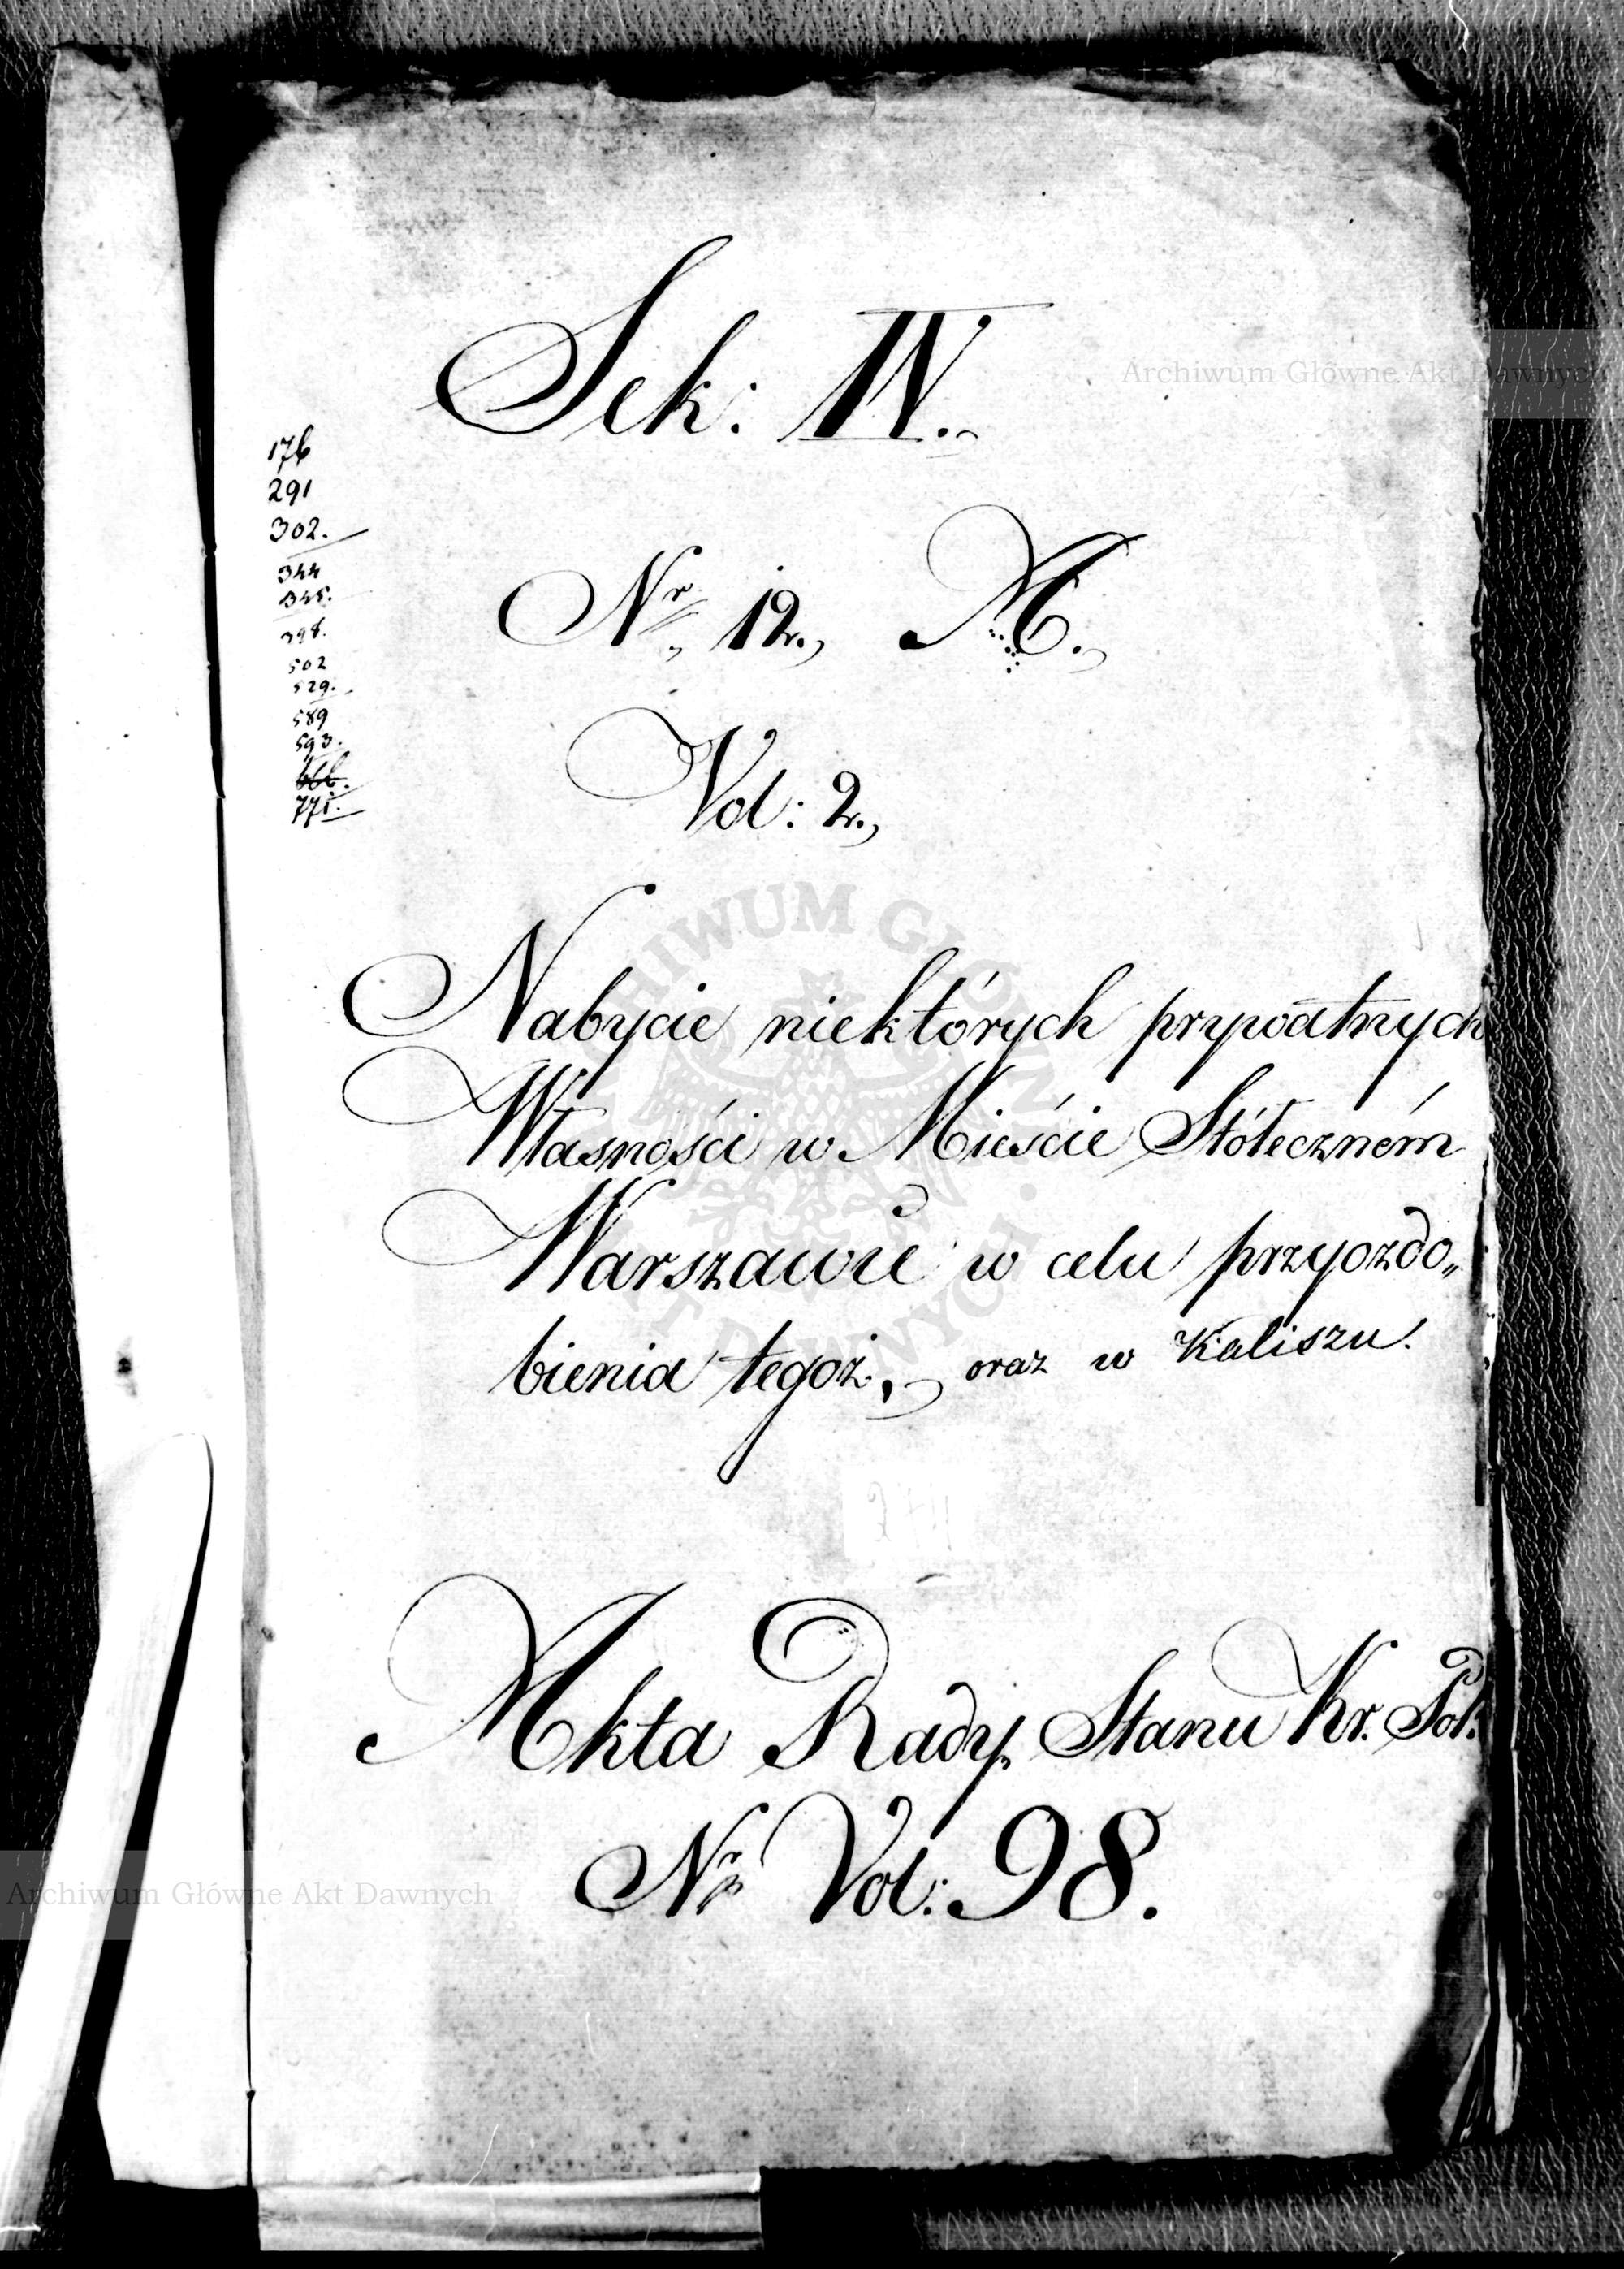 Archiwum Główne Akt Dawnych
Sek: IV.
176
291
302.
344
345.
398.
502
529.
589
593.
771.
Nr 12., A.
Vol: 2.,
Nabycie niektórych prywatnych
Własności w Mieście Stółeczném
Warszawie w celu przyozdo„
bienia tegoż, oraz w Kaliszu.
Akta Rady Stanu Kr. Pol.
Nr Vol: 98.
Archiwum Główne Akt Dawnych
ARCHIWUM GŁÓWNE AKT DAWNYCH